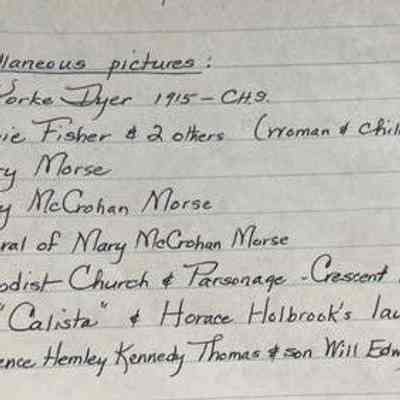 llaneous pictures:
Yorke Dyer 1915 - CHS.
ie Fisher & 2 others (woman & chil
ry Morse
y McCrohan Morse
ral of Mary McCrohan Morse
odist Church & Parsonage - Crescent
"Calista" & Horace Holbrook's lau
ence Hemley Kennedy Thomas & son Will Edw